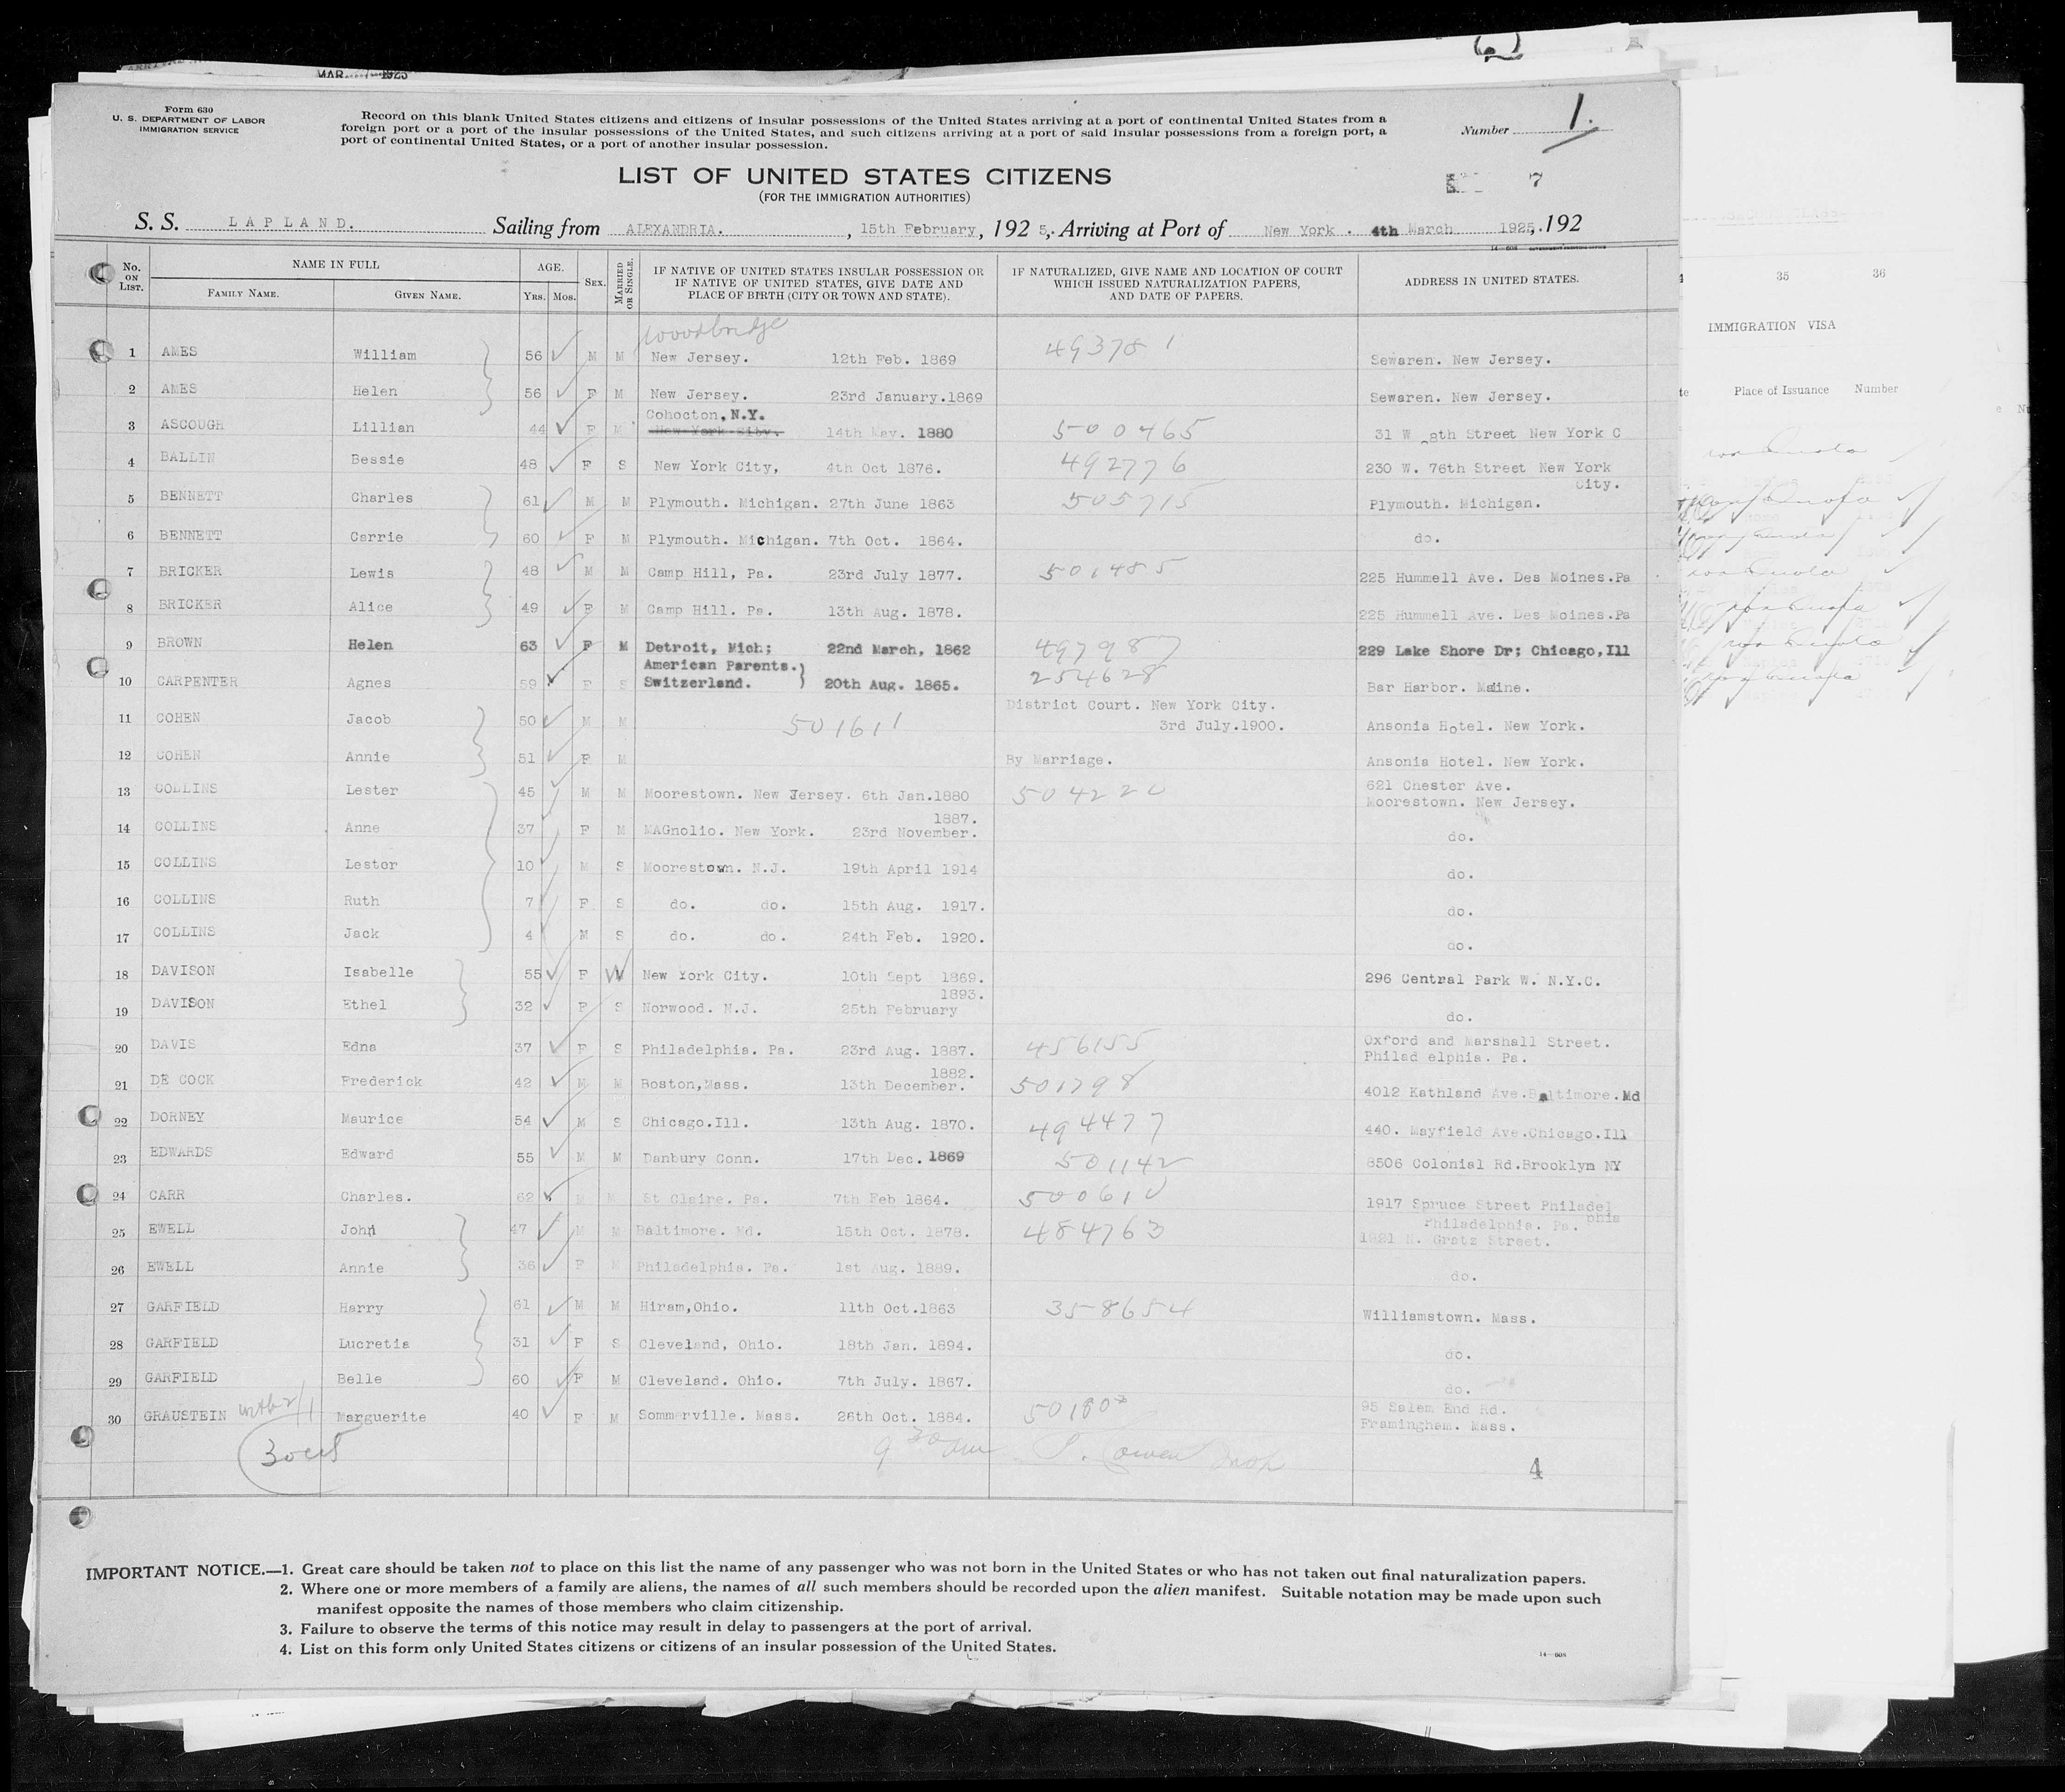 MAR 1925
Form 630
U. S. DEPARTMENT OF LABOR
IMMIGRATION SERVICE
Record on this blank United States citizens and citizens of insular possessions of the United States arriving at a port of continental United States from a
foreign port or a port of the insular possessions of the United States, and such citizens arriving at a port of said insular possessions from a foreign port, a
port of continental United States, or a port of another insular possession.
Number 1.
LIST OF UNITED STATES CITIZENS
(FOR THE IMMIGRATION AUTHORITIES)
7
S. S. LAPLAND. Sailing from ALEXANDRIA. , 15th February, 192 5, Arriving at Port of New York . 4th March 1925, 192
14—608
No. ON LIST. NAME IN FULL FAMILY NAME. GIVEN NAME. AGE. Yrs. Mos. SEX. MARRIED OR SINGLE. IF NATIVE OF UNITED STATES INSULAR POSSESSION OR IF NATIVE OF UNITED STATES, GIVE DATE AND PLACE OF BIRTH (CITY OR TOWN AND STATE). IF NATURALIZED, GIVE NAME AND LOCATION OF COURT WHICH ISSUED NATURALIZATION PAPERS, AND DATE OF PAPERS. ADDRESS IN UNITED STATES.
Woodbridge
1 AMES William 56 M M New Jersey. 12th Feb. 1869 493781 Sewaren. New Jersey.
2 AMES Helen 56 F M New Jersey. 23rd January.1869 Sewaren. New Jersey.
Cohocton, N.Y.
3 ASCOUGH Lillian 44 F M New York City. 14th May. 1880 500465 31 W 8th Street New York C
4 BALLIN Bessie 48 F S New York City, 4th Oct 1876. 492776 230 W. 76th Street New York
City.
5 BENNETT Charles 61 M M Plymouth. Michigan. 27th June 1863 505715 Plymouth. Michigan.
6 BENNETT Carrie 60 F M Plymouth. Michigan. 7th Oct. 1864. do.
7 BRICKER Lewis 48 M M Camp Hill, Pa. 23rd July 1877. 501485 225 Hummell Ave. Des Moines.Pa
8 BRICKER Alice 49 F M Camp Hill. Pa. 13th Aug. 1878. 225 Hummell Ave. Des Moines.Pa
9 BROWN Helen 63 F M Detroit, Mich; 22nd March, 1862 497987 229 Lake Shore Dr; Chicago,Ill
American Parents.
10 CARPENTER Agnes 59 F S Switzerland. 20th Aug. 1865. 254628 Bar Harbor. Maine.
District Court. New York City.
11 COHEN Jacob 50 M M 501611 3rd July.1900. Ansonia Hotel. New York.
12 COHEN Annie 51 F M By Marriage. Ansonia Hotel. New York.
621 Chester Ave.
13 COLLINS Lester 45 M M Moorestown. New Jersey. 6th Jan.1880 504220 Moorestown. New Jersey.
1887.
14 COLLINS Anne 37 F M MAGnolio. New York. 23rd November. do.
15 COLLINS Lester 10 M S Moorestown. N.J. 19th April 1914 do.
16 COLLINS Ruth 7 F S do. do. 15th Aug. 1917. do.
17 COLLINS Jack 4 M S do. do. 24th Feb. 1920. do.
18 DAVISON Isabelle 55 F W New York City. 10th Sept 1869. 296 Central Park W. N.Y.C.
1893.
19 DAVISON Ethel 32 F S Norwood. N.J. 25th February do.
Oxford and Marshall Street.
20 DAVIS Edna 37 F S Philadelphia. Pa. 23rd Aug. 1887. 456155 Philad elphia. Pa.
1882.
21 DE COCK Frederick 42 M M Boston,Mass. 13th December. 501798 4012 Kathland Ave.Baltimore.Md
22 DORNEY Maurice 54 M S Chicago.Ill. 13th Aug. 1870. 494477 440. Mayfield Ave.Chicago.Ill
23 EDWARDS Edward 55 M M Danbury Conn. 17th Dec. 1869 501142 8506 Colonial Rd.Brooklyn NY
24 CARR Charles. 62 M M St Claire. Pa. 7th Feb 1864. 500610 1917 Spruce Street Philadel
phia
Philadelphia. Pa.
25 EWELL John 47 M M Baltimore. Md. 15th Oct. 1878. 484763 1821 N. Gratz Street.
26 EWELL Annie 36 F M Philadelphia. Pa. 1st Aug. 1889. do.
27 GARFIELD Harry 61 M M Hiram,Ohio. 11th Oct.1863 358654 Williamstown. Mass.
28 GARFIELD Lucretia 31 F S Cleveland, Ohio. 18th Jan. 1894. do.
29 GARFIELD Belle 60 F M Cleveland. Ohio. 7th July. 1867. do.
95 Salem End Rd.
30 GRAUSTEIN Marguerite 40 F M Sommerville. Mass. 26th Oct. 1884. 50180 Framingham. Mass.
30 cit
9 30 am
4
IMPORTANT NOTICE.—1. Great care should be taken not to place on this list the name of any passenger who was not born in the United States or who has not taken out final naturalization papers.
2. Where one or more members of a family are aliens, the names of all such members should be recorded upon the alien manifest. Suitable notation may be made upon such
manifest opposite the names of those members who claim citizenship.
3. Failure to observe the terms of this notice may result in delay to passengers at the port of arrival.
4. List on this form only United States citizens or citizens of an insular possession of the United States.
14—608
35 36
IMMIGRATION VISA
Place of Issuance Number